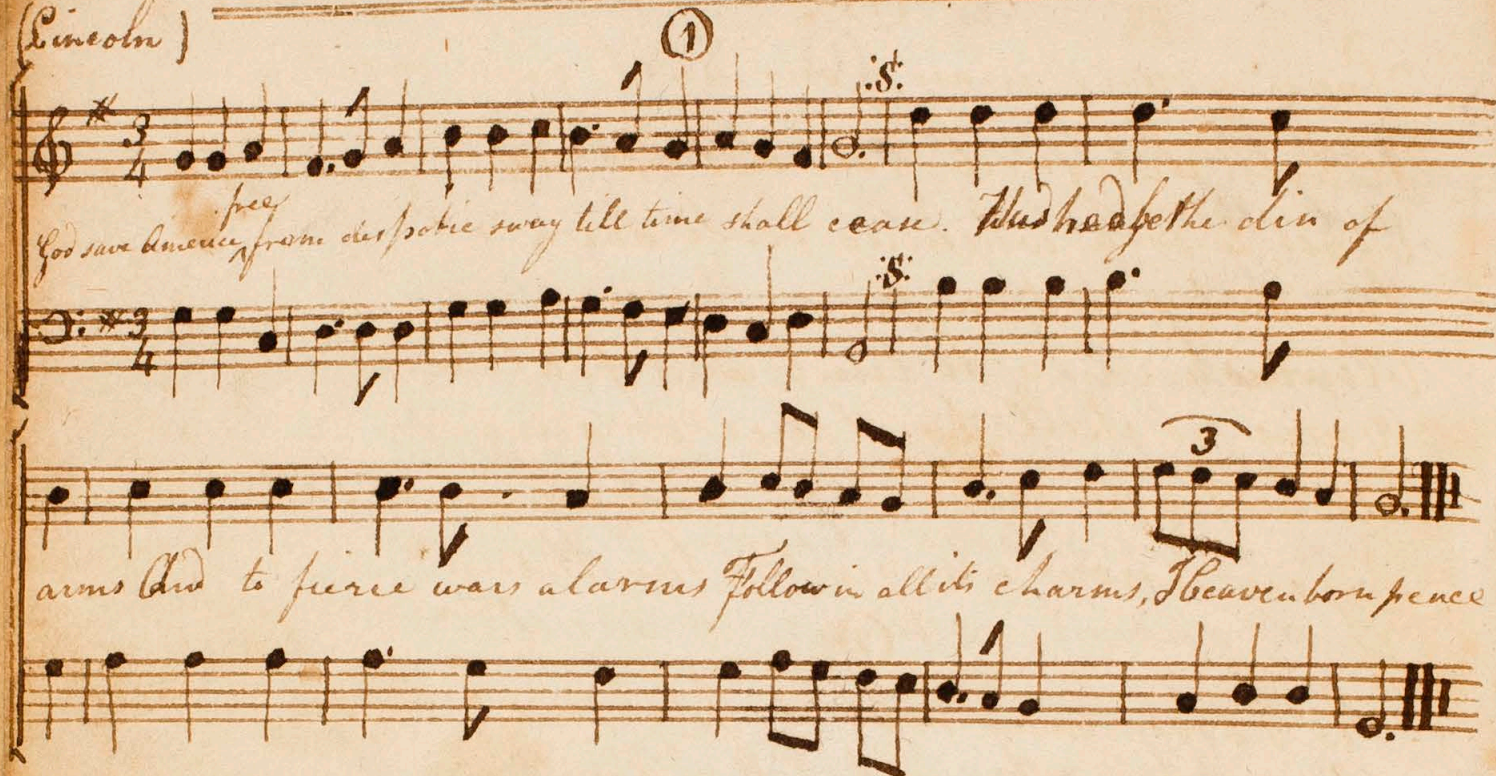 (Lincoln)
1
3
4
:S:
free
God save America ^ from despotic sway till time shall cease. Hushed be the din of
:S:
3
4
3
arms And to fierce wars alarms Follow in all its charms, Heaven born peace